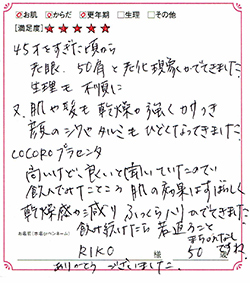 お肌 からだ 更年期 生理 その他
[満足度] ★★★★★
45才をすぎた頃から
老眼、50肩と老化現象がでてきました
生理も不順に
又、肌や髪も乾燥が強くカサつき
顔のシワやタルミもひどくなってきました
COCOROプラセンタ
高いけど、良いと聞いていたので
飲んでみたところ 肌の効果はすばらしく
乾燥感が減り ふっくらハリがでてきました
飲み続けたら若返ること
まちがいなし
ですね
お名前(本名orペンネーム)
RIKO 様 50 歳
ありがとうございました。